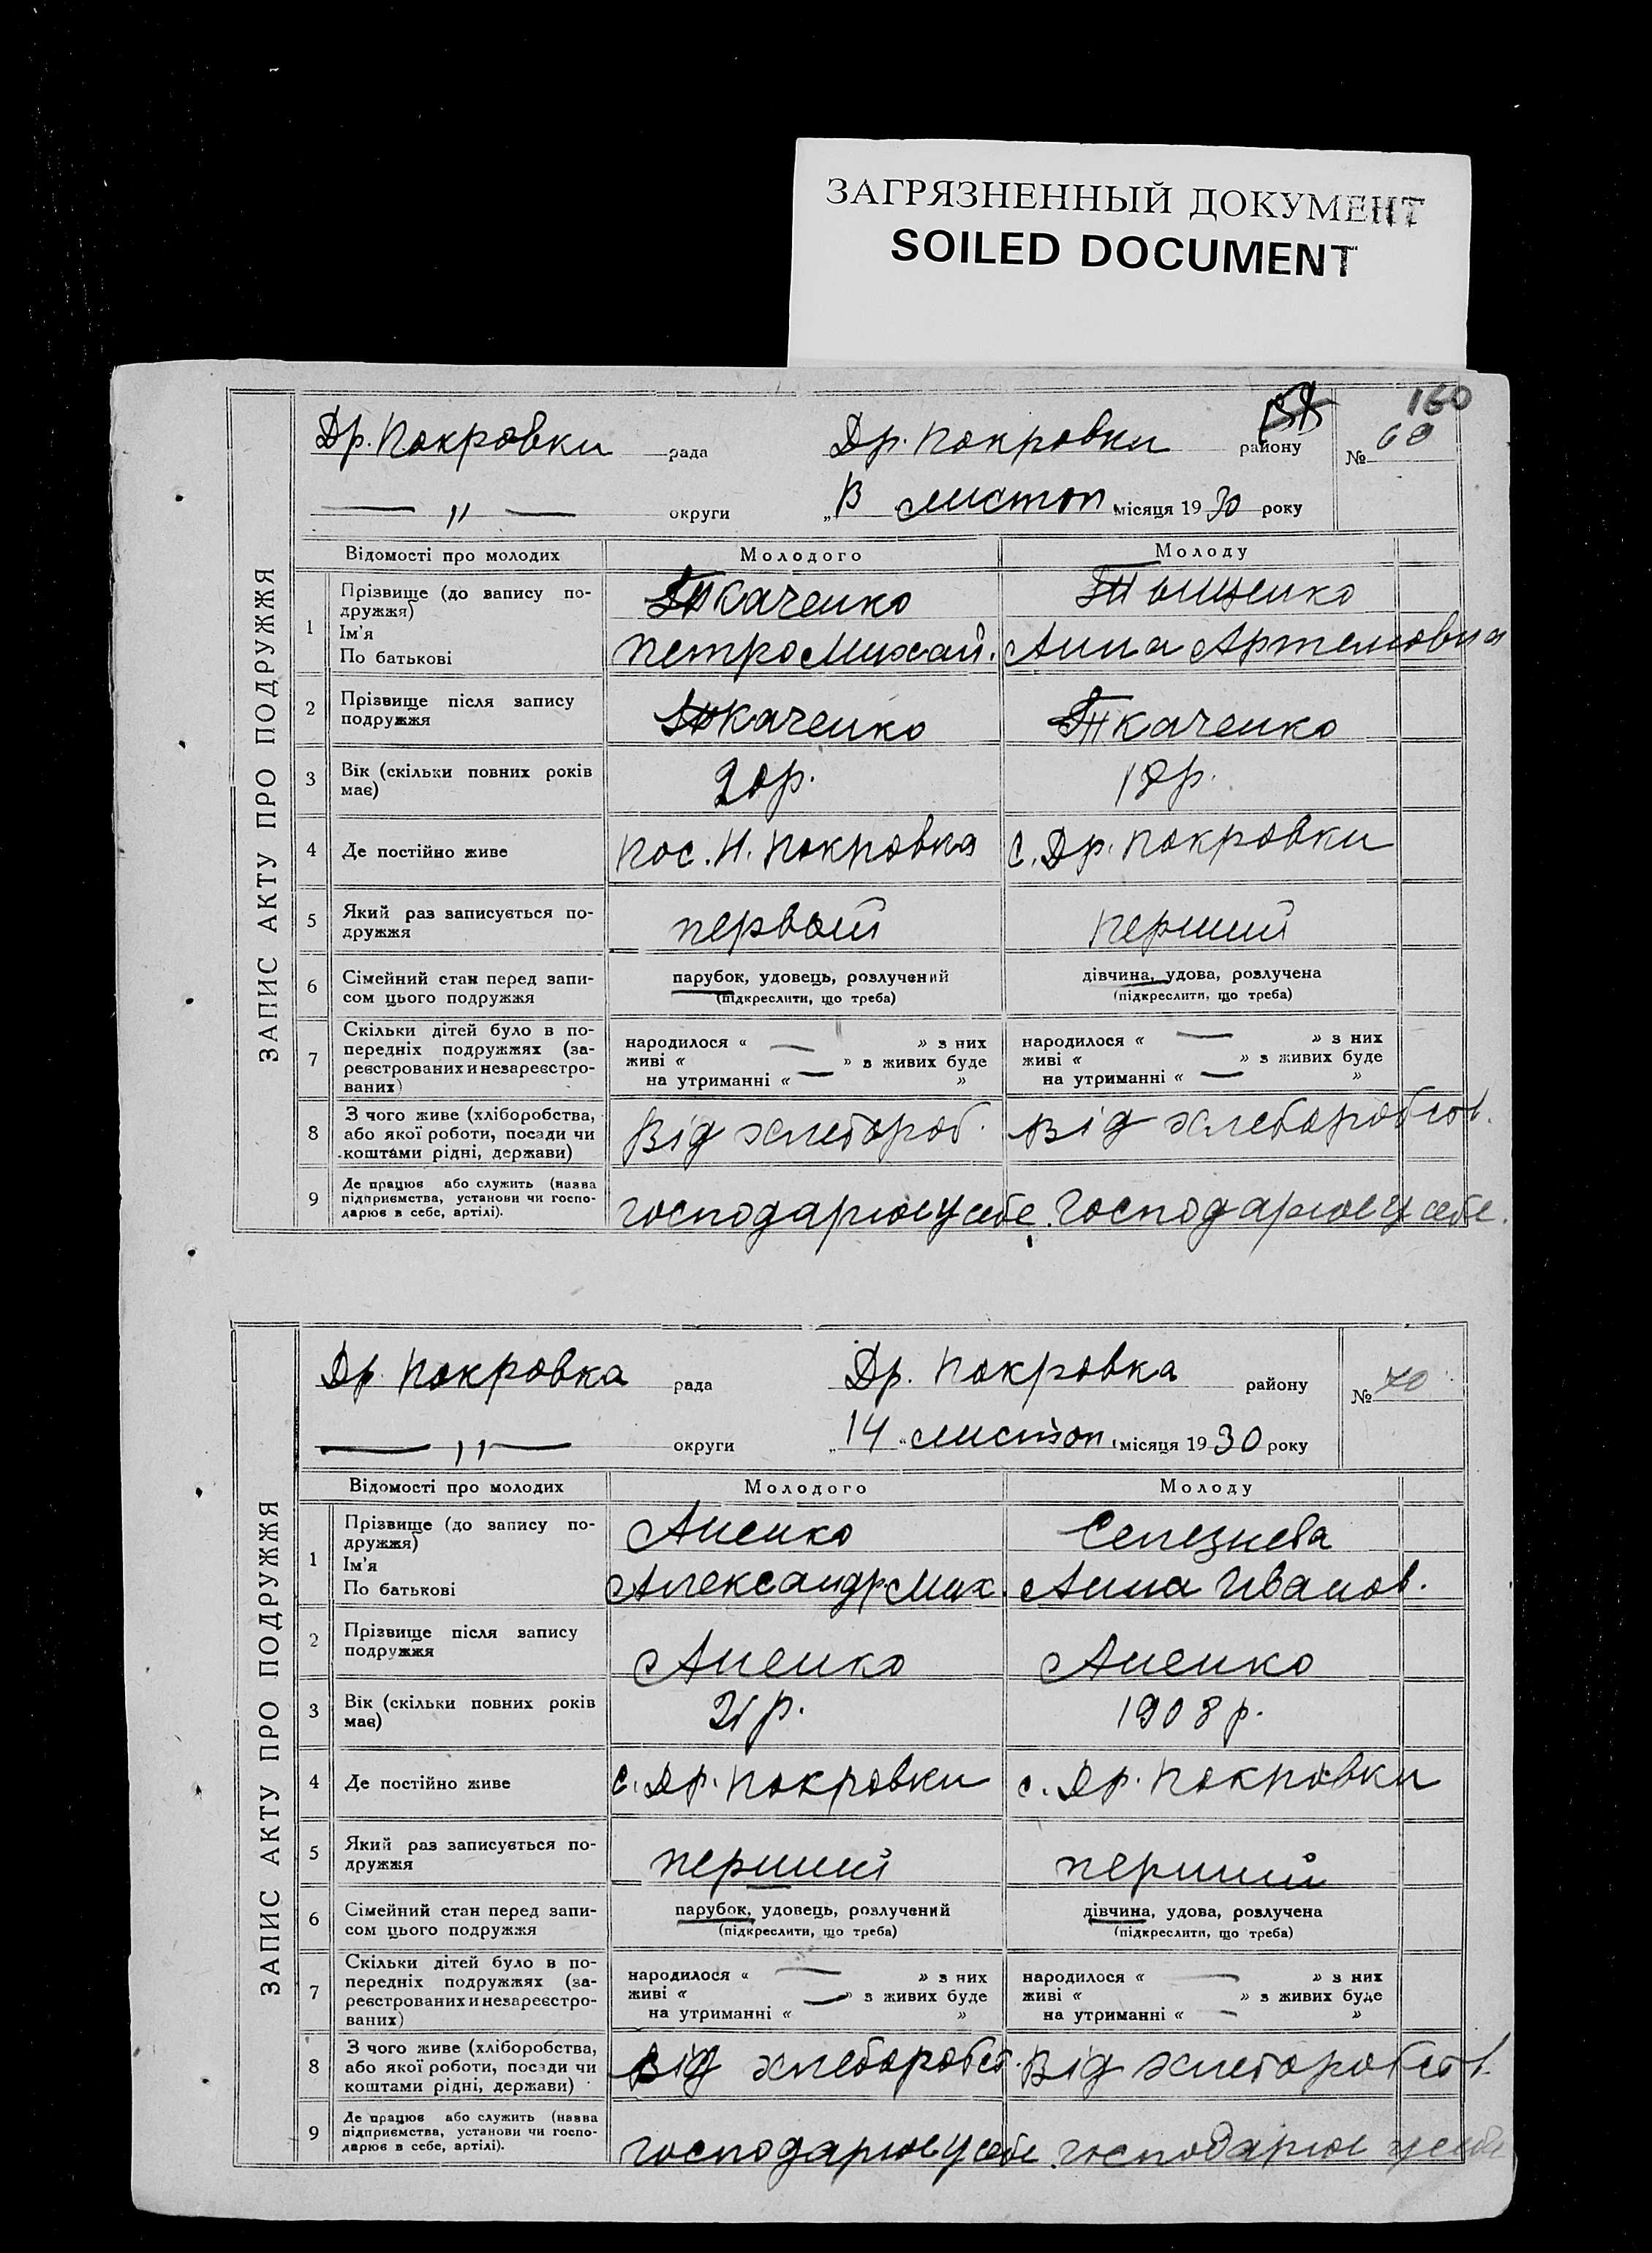 ЗАГРЯЗНЕННЫЙ ДОКУМЕНТ
SOILED DOCUMENT
160
ЗАПИС АКТУ ПРО ПОДРУЖЖЯ
Др. Покровки рада Др. Покровки району № 69
— „ — округи „13 листоп. місяця 1930 року
Відомості про молодих Молодого Молоду
1 Прізвище (до запису подружжя) Ткаченко Тыщенко
Ім'я
По батькові Петро Михай. Анна Артемовна
2 Прізвище після запису подружжя Ткаченко Ткаченко
3 Вік (скільки повних років має) 20 р. 18 р.
4 Де постійно живе пос. Н. Покровка с. Др. Покровки
5 Який раз записується подружжя первый перший
6 Сімейний стан перед записом цього подружжя парубок, удовець, розлучений дівчина, удова, розлучена
(підкреслити, що треба) (підкреслити, що треба)
7 Скільки дітей було в попередніх подружжях (зареєстрованих и незареєстрованих)
народилося « — » з них народилося « — » з них
живі « » з живих буде живі « » з живих буде
на утриманні « — » на утриманні « — »
8 З чого живе (хліборобства, або якої роботи, посади чи коштами рідні, держави) Від хлебороб. Від хлеборобств.
9 Де працює або служить (назва підприємства, установи чи господарює в себе, артілі). господарює у себе. господарює у себе.
ЗАПИС АКТУ ПРО ПОДРУЖЖЯ
Др. Покровка рада Др. Покровка району № 70
— „ — округи „14 „ листоп. місяця 1930 року
Відомості про молодих Молодого Молоду
1 Прізвище (до запису подружжя) Аненко Селезнева
Ім'я
По батькові Александр. Мих. Анна Иванов.
2 Прізвище після запису подружжя Аненко Аненко
3 Вік (скільки повних років має) 21 р. 1908 р.
4 Де постійно живе с. Др. Покровки с. Др. Покровки
5 Який раз записується подружжя перший перший
6 Сімейний стан перед записом цього подружжя парубок, удовець, розлучений дівчина, удова, розлучена
(підкреслити, що треба) (підкреслити, що треба)
7 Скільки дітей було в попередніх подружжях (зареєстрованих и незареєстрованих)
народилося « — » з них народилося « — » з них
живі « — » з живих буде живі « » з живих буде
на утриманні « » на утриманні « — »
8 З чого живе (хліборобства, або якої роботи, посади чи коштами рідні, держави) Від хлеборобст. Від хлеборобств.
9 Де працює або служить (назва підприємства, установи чи господарює в себе, артілі). господарює у себе. господарює у себе